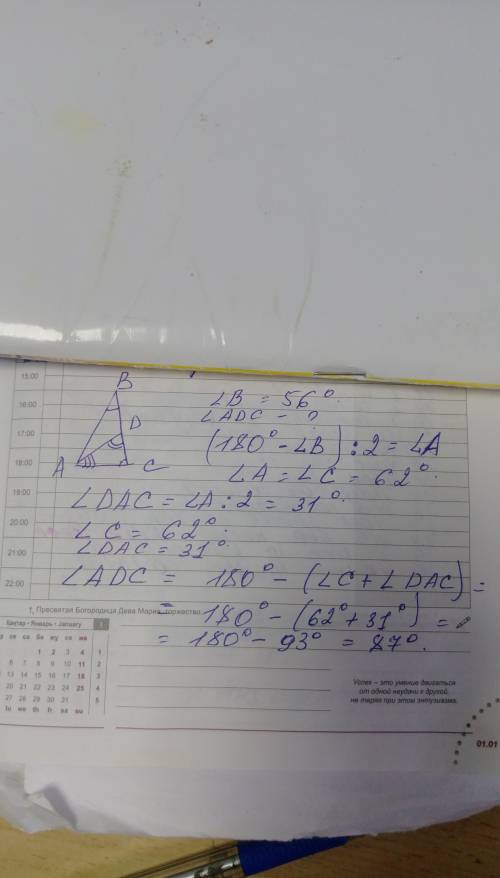 15:00
16:00
17:00
18:00
19:00
20:00
21:00
22:00
B
D
A
C
∠B = 56°.
∠ADC = ?
(180° - ∠B) : 2 = ∠A
∠A = ∠C = 62°.
∠DAC = ∠A : 2 = 31°.
∠C = 62°.
∠DAC = 31°.
∠ADC = 180° - (∠C + ∠DAC) =
= 180° - (62° + 31°) =
= 180° - 93° = 87°.
1, Пресвятая Богородица Дева Мария, торжество
Қаңтар • Январь • January 1
р се сә бе жұ сн жк
1 2 3 4 1
6 7 8 9 10 11 2
13 14 15 16 17 18 3
20 21 22 23 24 25 4
27 28 29 30 31 5
tu we th fr sa su
Успех – это умение двигаться
от одной неудачи к другой,
не теряя при этом энтузиазма.
01.01